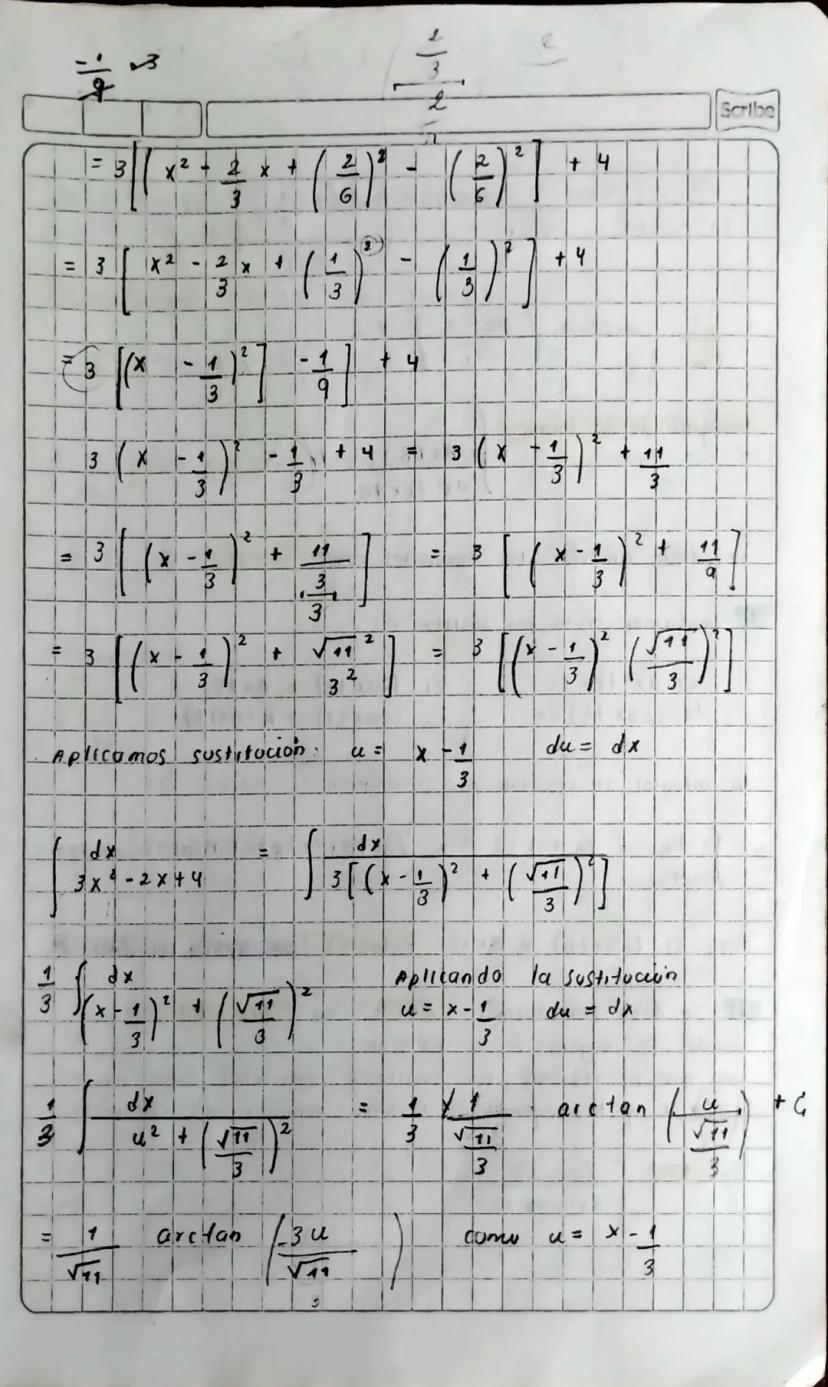 -1/9 · 3
2/3 / 2
Scribe
= 3 [ ( x² - 2/3 x + (2/6)² - (2/6)² ] + 4
= 3 [ x² - 2/3 x + (1/3)² - (1/3)² ] + 4
= 3 [ (x - 1/3)² ] - 1/9 ] + 4
3 (x - 1/3)² - 1/3 + 4 = 3 (x - 1/3)² + 11/3
= 3 [ (x - 1/3)² + 11/3/3 ] = 3 [ (x - 1/3)² + 11/9 ]
= 3 [ (x - 1/3)² + √11²/3² ] = 3 [ (x - 1/3)² (√11/3)² ]
Aplicamos sustitución: u = x - 1/3 du = dx
∫ dx / 3x² - 2x + 4 = ∫ dx / 3 [ (x - 1/3)² + (√11/3)² ]
1/3 ∫ dx / (x - 1/3)² + (√11/3)² Aplicando la sustitución
u = x - 1/3 du = dx
1/3 ∫ dx / u² + (√11/3)² = 1/3 × 1/(√11/3) arctan ( u / (√11/3) ) + C
= 1/√11 arctan ( 3u/√11 ) como u = x - 1/3